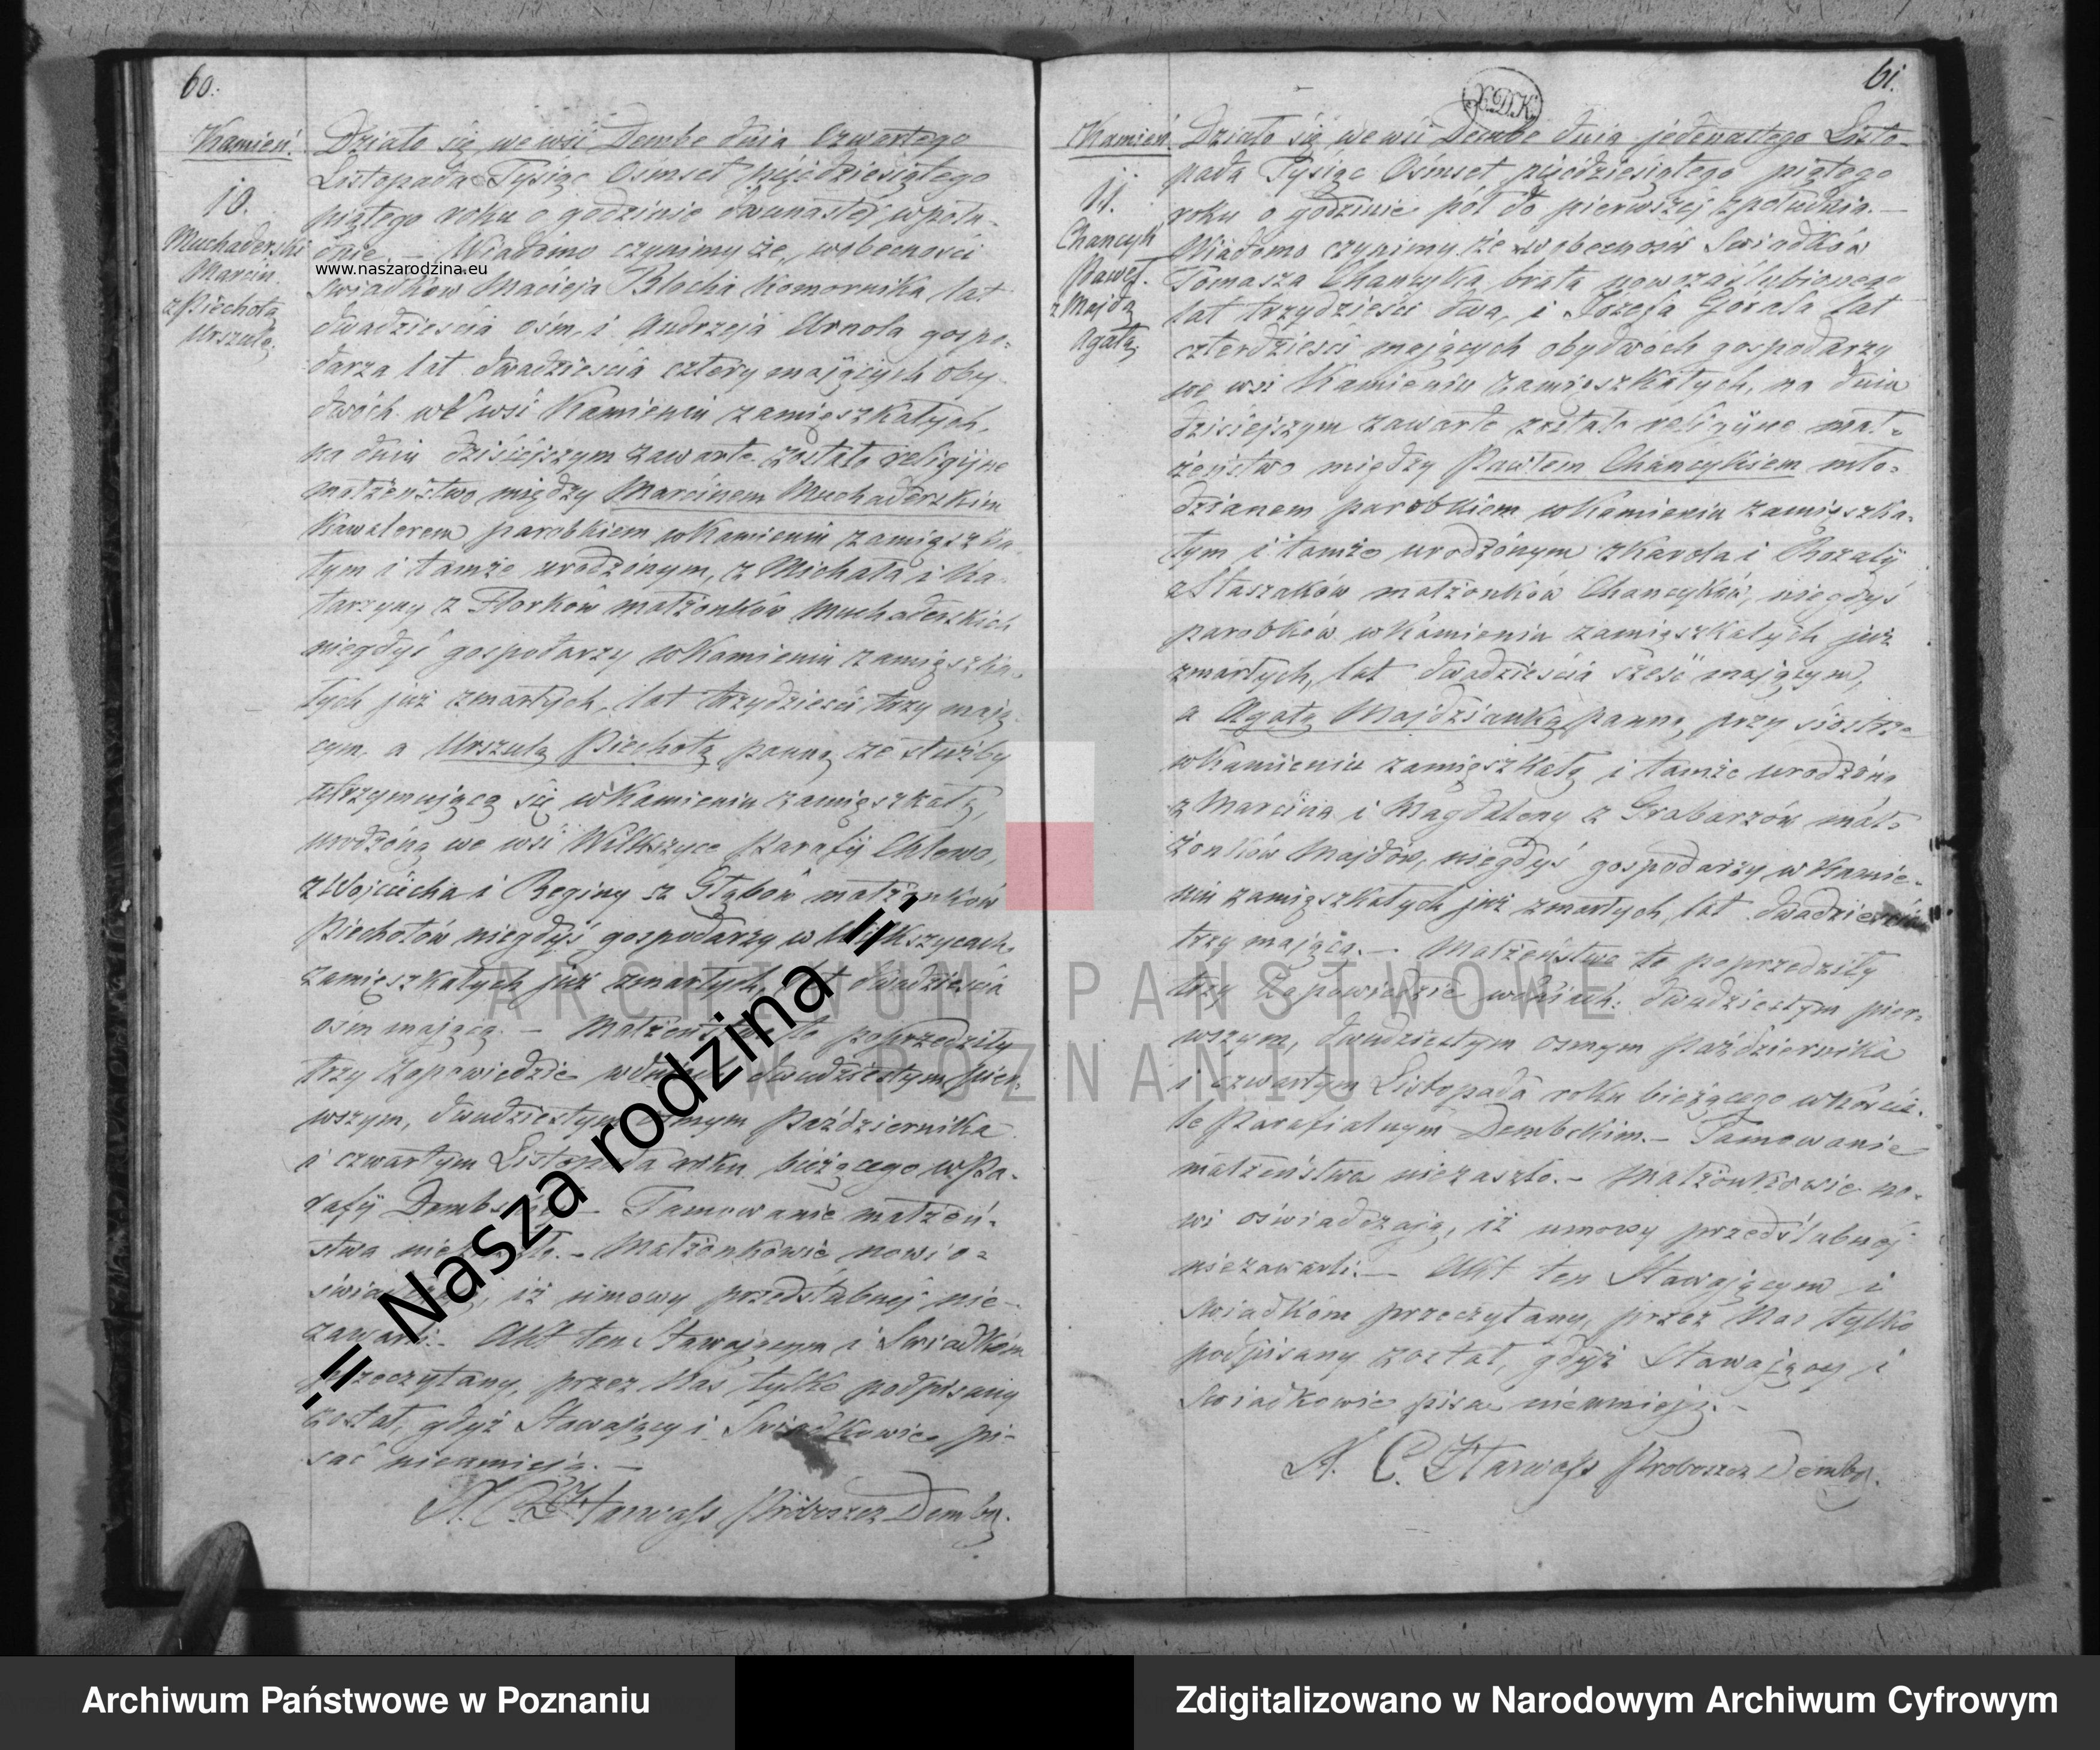 60.
Kamień.
10.
Muchaderski
Marcin
z Piechotą
Urszulą.
Działo się we wsi Dembe dnia Czwartego
Listopada Tysiąc Ośmset pięćdziesiątego
piątego roku o godzinie dwunastej w połu-
dnie. — Wiadomo czynimy że, w obecności
www.naszarodzina.eu
Swiadków Macieja Blocha Komornika lat
dwadzieścia ośm, i Andrzeja Urnola gospo-
darza lat dwadzieścia cztery mających oby-
dwóch we wsi Kamieniu zamięszkałych,
na dniu dzisiejszym zawarte zostało religijne
małżeństwo między Marcinem Muchaderskim
Kawalerem parobkiem w Kamieniu zamięszka-
łym i tamże urodzonym, z Michała i Ka-
tarzyny z Florków małżonków Muchaderskich
niegdyś gospodarzy w Kamieniu zamięszka-
łych już zmarłych, lat trzydzieści trzy mają-
cym, a Urszulą Piechotą panną ze służby
utrzymującą się w Kamieniu zamięszkałą,
urodzoną we wsi Wilkszyce Parafij Chlewo,
z Wojciecha i Reginy z Głąbów małżonków
Piechotów niegdyś gospodarzy w Wilkszycach
zamięszkałych już zmarłych, lat dwadzieścia
ośm mającą. — Małżeństwo to poprzedziły
trzy Zapowiedzie w dniach dwudziestym pier-
wszym, dwudziestym osmym Października
i czwartym Listopada roku bieżącego w Pa-
rafij Dembskiej — Tamowanie małżeń-
stwa niezaszło. — Małżonkowie nowi o-
świadczają, iż umowy przedślubnej nie-
zawarli. — Akt ten Stawającym i Swiadkóm
przeczytany, przez Nas tylko podpisany
został, gdyż Stawający i Swiadkowie pi-
sać nieumieją. —
X. C. Harwass Proboszcz Demby.
-= Nasza rodzina =-
61.
X.D.K.
Kamień.
11.
Chancyk
Paweł.
z Majdą
Agatą.
Działo się we wsi Dembe dnia jedenastego Listo-
pada Tysiąc Ośmset pięćdziesiątego piątego
roku o godzinie pół do pierwszej z południa. —
Wiadomo czynimy że w obecności Swiadków
Tomasza Chancyka brata nowozaślubionego
lat trzydzieści dwa, i Józefa Gorala lat
czterdzieści mających obydwóch gospodarzy
we wsi Kamieniu zamięszkałych, na dniu
dzisiejszym zawarte zostało religijne mał-
żeństwo między Pawłem Chancykiem mło-
dzianem parobkiem w Kamieniu zamięszka-
łym i tamże urodzonym z Karola i Rozalij
z Staszaków małżonków Chancyków, niegdyś
parobków w Kamieniu zamięszkałych już
zmarłych, lat dwadzieścia sześć mającym,
a Agatą Majdzianką panną, przy siostrze
w Kamieniu zamięszkałą i tamże urodzoną
z Marcina i Magdaleny z Grabarzów mał-
żonków Majdów, niegdyś gospodarzy w Kamie-
niu zamięszkałych już zmarłych, lat dwadzieścia
trzy mającą. — Małżeństwo to poprzedziły
trzy Zapowiedzie w dniach: dwudziestym pier-
wszym, dwudziestym osmym Października
i czwartym Listopada roku bieżącego w Koście-
le Parafialnym Dembskim. — Tamowanie
małżeństwa niezaszło. — Małżonkowie no-
wi oświadczają, iż umowy przedślubnej
niezawarli. — Akt ten Stawającym i
Swiadkóm przeczytany, przez Nas tylko
podpisany został, gdyż Stawający i
Swiadkowie pisać nieumieją. —
X. C. Harwass Proboszcz Demby.
ARCHIWUM PAŃSTWOWE
W POZNANIU
Archiwum Państwowe w Poznaniu
Zdigitalizowano w Narodowym Archiwum Cyfrowym